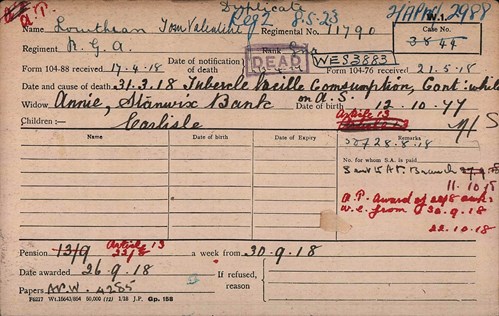 Duplicate
Reg 2 8.5.23
W.1.
Name Lowthean Tom Valentine Regimental No. 11790
Case No. 3844
Regiment R.G.A. Rank Gnr
DEAD WES3883
Form 104-88 received 17.4.18 Date of notification of death Form 104-76 received 21.5.18
Date and cause of death 31.3.18 Tubercle Bacille Comsumption, Cont: while
on A.S.
Widow Annie, Stanwix Bank Date of birth 12.10.77
Children:— Carlisle
Article 13
Name Date of birth Date of Expiry Remarks
28.8.18
No. for whom S.A. is paid
11.10.18
A.P. Award of
W.e. from 30.9.18
22.10.18
Pension 13/9 Article 13 a week from 30.9.18
Date awarded 26.9.18 If refused, reason
Papers A.W. 4285
P6217 Wt.16643/664 50,000 (12) 1/18 J.P. Gp. 158